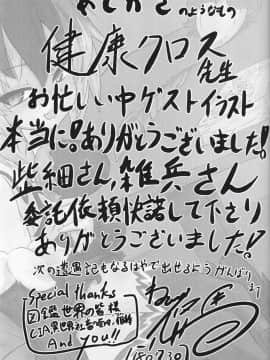 あとがきのようなもの
健康クロス先生
お忙しい中ゲストイラスト
本当に!ありがとうございました!
柴細さん、雑兵さん
委託依頼快諾して下さり
ありがとうございました!
次の遺圏記もなるはやで出せるようがんばります
Special thanks
図鑑世界の皆様
And you!!